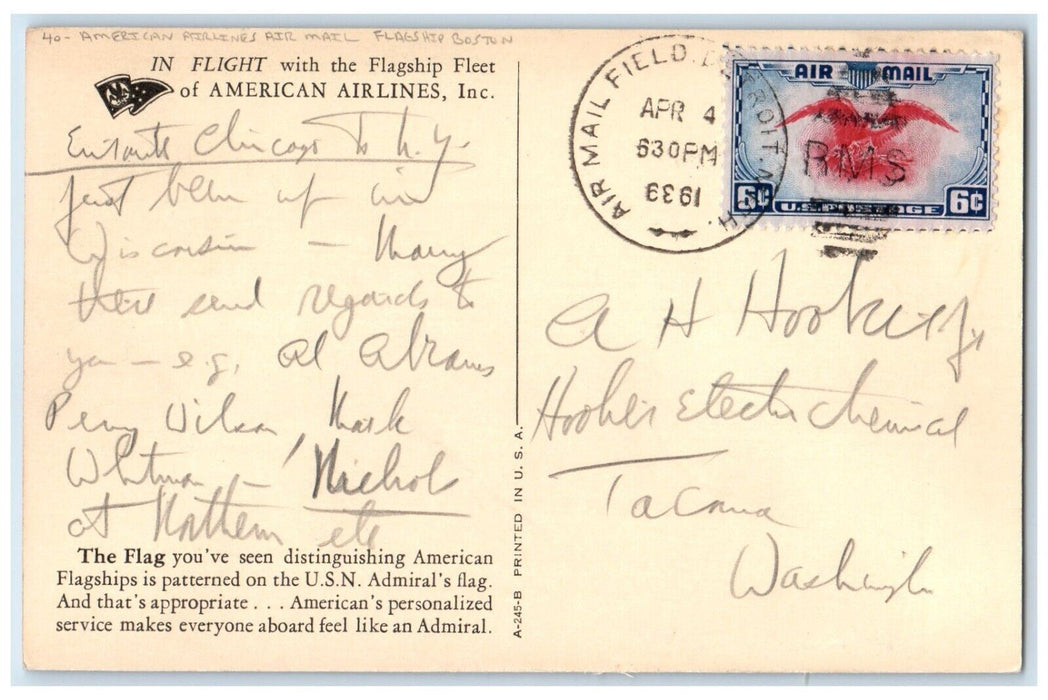 40- AMERICAN AIRLINES AIR MAIL FLAGSHIP BOSTON
IN FLIGHT with the Flagship Fleet
of AMERICAN AIRLINES, Inc.
AA
Enroute Chicago to N.Y.
Just been up in
Wisconsin — Many
there send regards to
you — e.g. Al Abrams
Perry Wilson, Mark
Whitman — Nichols
at Northern etc
The Flag you've seen distinguishing American
Flagships is patterned on the U.S.N. Admiral's flag.
And that's appropriate . . . American's personalized
service makes everyone aboard feel like an Admiral.
A-245-B PRINTED IN U. S. A.
AIR MAIL FIELD. DETROIT. MICH.
APR 4
630PM
1939
AIR MAIL
RMS
6¢ U.S. POSTAGE 6¢
A H Hooker Jr
Hooker Electrochemical
Tacoma
Washington